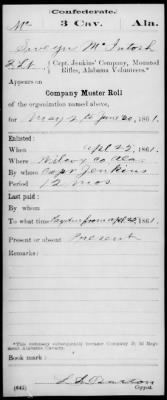 Confederate.
Mc 3 Cav. Ala.
McIntosh
2 Lt, Capt. Jenkins' Company, Mounted Rifles, Alabama Volunteers.*
Appears on
Company Muster Roll
of the organization named above,
for May 2 to June 30, 1861.
Enlisted:
When Apl 22, 1861.
Where Wilcox co. Ala.
By whom Capt Jenkins
Period 12 mos
Last paid:
By whom
To what time 1861.
Present or absent Present
Remarks:
*This company subsequently became Company
Alabama Cavalry.
Book mark:
(642) Copyist.